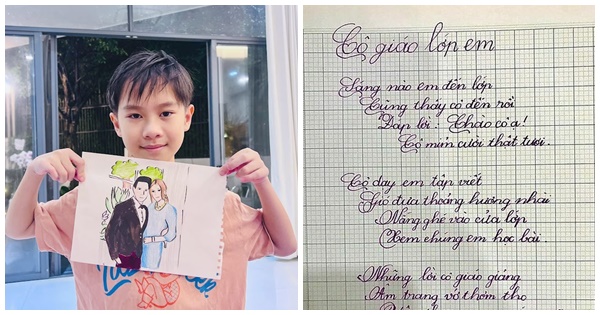 Cô giáo lớp em
Sáng nào em đến lớp
Cũng thấy cô đến rồi
Đáp lời: Chào cô ạ!
Cô mỉm cười thật tươi.
Cô dạy em tập viết
Gió đưa thoảng hương nhài
Nắng ghé vào cửa lớp
Xem chúng em học bài.
Những lời cô giáo giảng
Ấm trang vở thơm tho